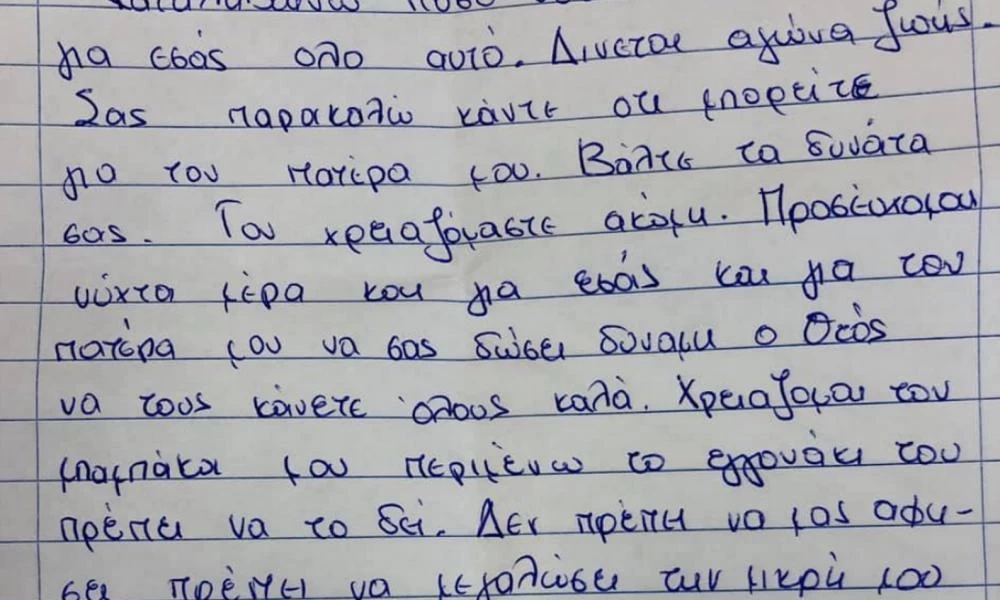 Καταλαβαίνω πόσο
για εσάς ολο αυτό. Δινεται αγώνα ζωής.
Σας παρακαλώ κάντε οτι μπορείτε
για τον πατέρα μου. Βάλτε τα δυνάτα
σας. Τον χρειαζόμαστε ακόμη. Προσέυχομαι
νύχτα μέρα και για εσάς και για τον
πατέρα μου να σας δώσει δυναμη ο Θεός
να τους κάνετε όλους καλά. Χρειαζομαι τον
μπαμπάκα μου περιμένω το εγγονάκι του
πρέπει να το δεί. Δεν πρέπει να μας αφη-
σει πρέπει να μεγαλώσει την μικρή μου